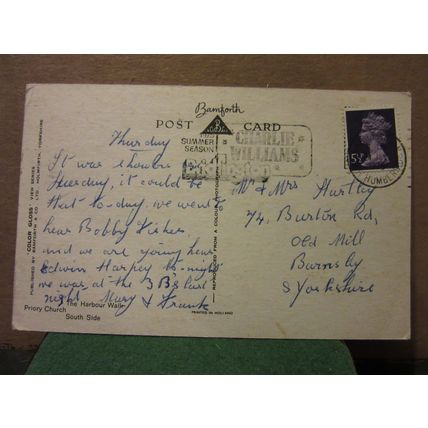 Bamforth
POST CARD
"COLOR GLOSS" VIEW SERIES
PUBLISHED BY BAMFORTH & CO. LTD. HOLMFIRTH, YORKSHIRE
Thursday
It was
Tuesday, it could be
that to-day, we went to
hear Bobby Fisher,
and we are going hear
Edwin Harper to-night
we was at the 3 B's last
night Mary & Frank
Priory Church The Harbour Walk
South Side
REPRODUCED FROM A COLOUR PHOTOGRAPH
PRINTED IN HOLLAND
SUMMER
SEASON
CHARLIE
WILLIAMS
5½
HUMBER
Mr & Mrs Hurtley
74, Burton Rd,
Old Mill
Barnsley
S Yorkshire